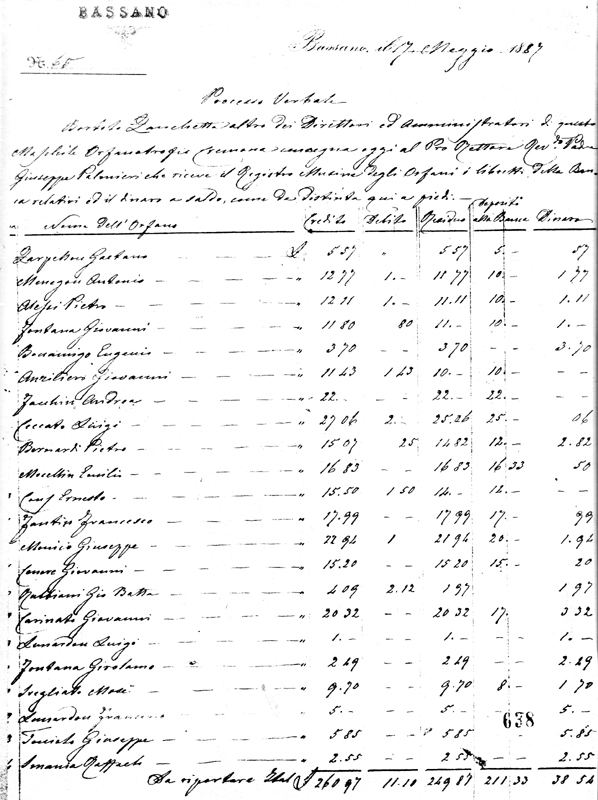 BASSANO
Bassano, il 17 Maggio 1887
N. 65
Processo Verbale
Bortolo Zanchetta altro dei Direttori ed Amministratori di questo
Maschile Orfanotrofio Cremona consegna oggi al Pro Rettore
Giuseppe Palmieri che riceve il Registro Masine degli Orfani i libretti della Ban-
ca relativi ed il dinaro a saldo, come da distinta qui a piedi. —
Nome dell'Orfano Credito Debito Residuo depositi alla Banca Dinaro
Gaetano £ 5 57 " 5 57 5.- 57
Menegon Antonio " 12 77 1.- 11 77 10.- 1 77
Alessi Pietro " 12 11 1.- 11.11 10.- 1.11
Fontana Giovanni " 11 80 80 11.- 10.- 1.-
Bonamigo Eugenio " 3 70 - - 3 70 - - 3.70
Giovanni " 11 43 1 43 10.- 10.- - -
Facchin Andrea " 22.- - - 22.- 22.- - -
Ceccato Luigi " 27 06 2.- 25.06 25.- 06
Bernardi Pietro " 15 07 25 14 82 12.- 2.82
Mocellin Emilio " 16 83 - - 16 83 16 33 50
Ernesto " 15.50 1 50 14.- 14.- - -
Francesco " 17.99 - - 17 99 17.- 99
Giuseppe " 22 94 1 21 94 20.- 1.94
Giovanni " 15.20 - - 15 20 15.- 20
Gio Batta " 4 09 2.12 1 97 1 97
Carinato Giovanni " 20 32 - - 20 32 17. 3 32
Lunardon Luigi " 1.- - - 1.- - - 1.-
Fontana Girolamo " 2 49 - - 2 49 - - 2.49
" 9.70 - - 9.70 8.- 1 70
Lunardon Francesco 5.- - - 5.- 5.-
638
Giuseppe " 5 85 - - 5 85 5.85
Smania Raffaele " 2.55 - - 2 55 2.55
Da riportare £ 260 97 11.10 249 87 211 33 38 54